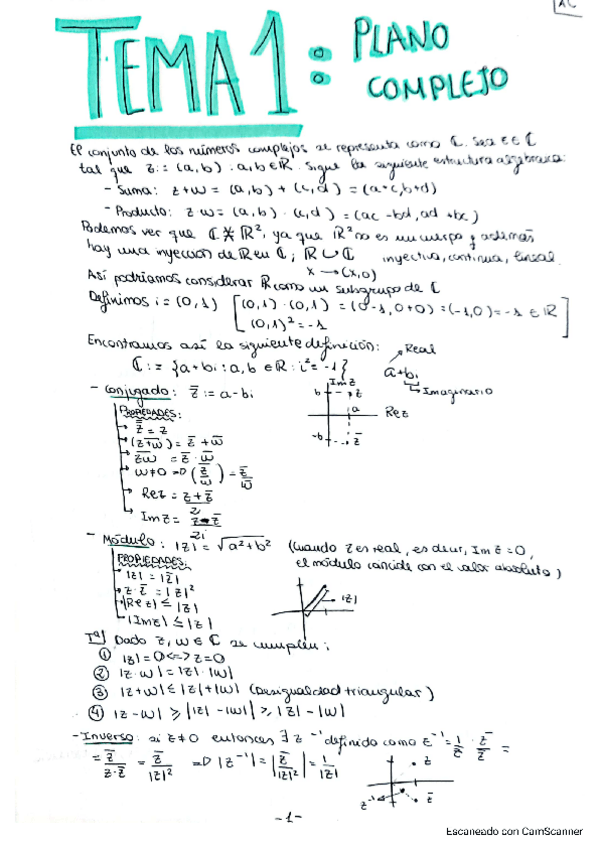 AC
TEMA 1: PLANO
COMPLEJO
El conjunto de los números complejos se representa como ℂ. Sea z ∈ ℂ
tal que z := (a,b) : a,b ∈ ℝ. Sigue la siguiente estructura algebraica:
- Suma: z+w = (a,b) + (c,d) = (a+c, b+d)
- Producto: z·w = (a,b) · (c,d) = (ac-bd, ad+bc)
Podemos ver que ℂ ≠ ℝ², ya que ℝ² no es un cuerpo y además
hay una inyección de ℝ en ℂ; ℝ ↪ ℂ inyectiva, continua, lineal.
x → (x,0)
Así podríamos considerar ℝ como un subgrupo de ℂ
Definimos i = (0,1) [(0,1)·(0,1) = (0-1, 0+0) = (-1,0) = -1 ∈ ℝ
(0,1)² = -1]
Encontramos así la siguiente definición:
ℂ := {a+bi : a,b ∈ ℝ : i² = -1}
Real
a+bi
Imaginario
- Conjugado: z̅ := a-bi
Im z
b z
a Re z
-b z̅
PROPIEDADES:
z̿ = z
(z+w)‾ = z̅ + w̅
(zw)‾ = z̅ · w̅
w≠0 ⇒ (z/w)‾ = z̅/w̅
Re z = (z+z̅)/2
Im z = (z-z̅)/2i
- Módulo: |z| = √(a²+b²) (Cuando z es real, es decir, Im z = 0,
el módulo coincide con el valor absoluto)
PROPIEDADES:
|z| = |z̅|
z·z̅ = |z|²
|Re z| ≤ |z|
|Im z| ≤ |z|
|z|
Tª] Dado z, w ∈ ℂ se cumplen:
① |z| = 0 <=> z = 0
② |z·w| = |z|·|w|
③ |z+w| ≤ |z|+|w| (Desigualdad triangular)
④ |z-w| ≥ ||z|-|w|| ≥ |z|-|w|
- Inverso: si z≠0 entonces ∃ z⁻¹ definido como z⁻¹ = 1/z · z̅/z̅ =
= z̅/(z·z̅) = z̅/|z|² ⇒ |z⁻¹| = |z̅/|z|²| = 1/|z|
z
z⁻¹ z̅
-1-
Escaneado con CamScanner